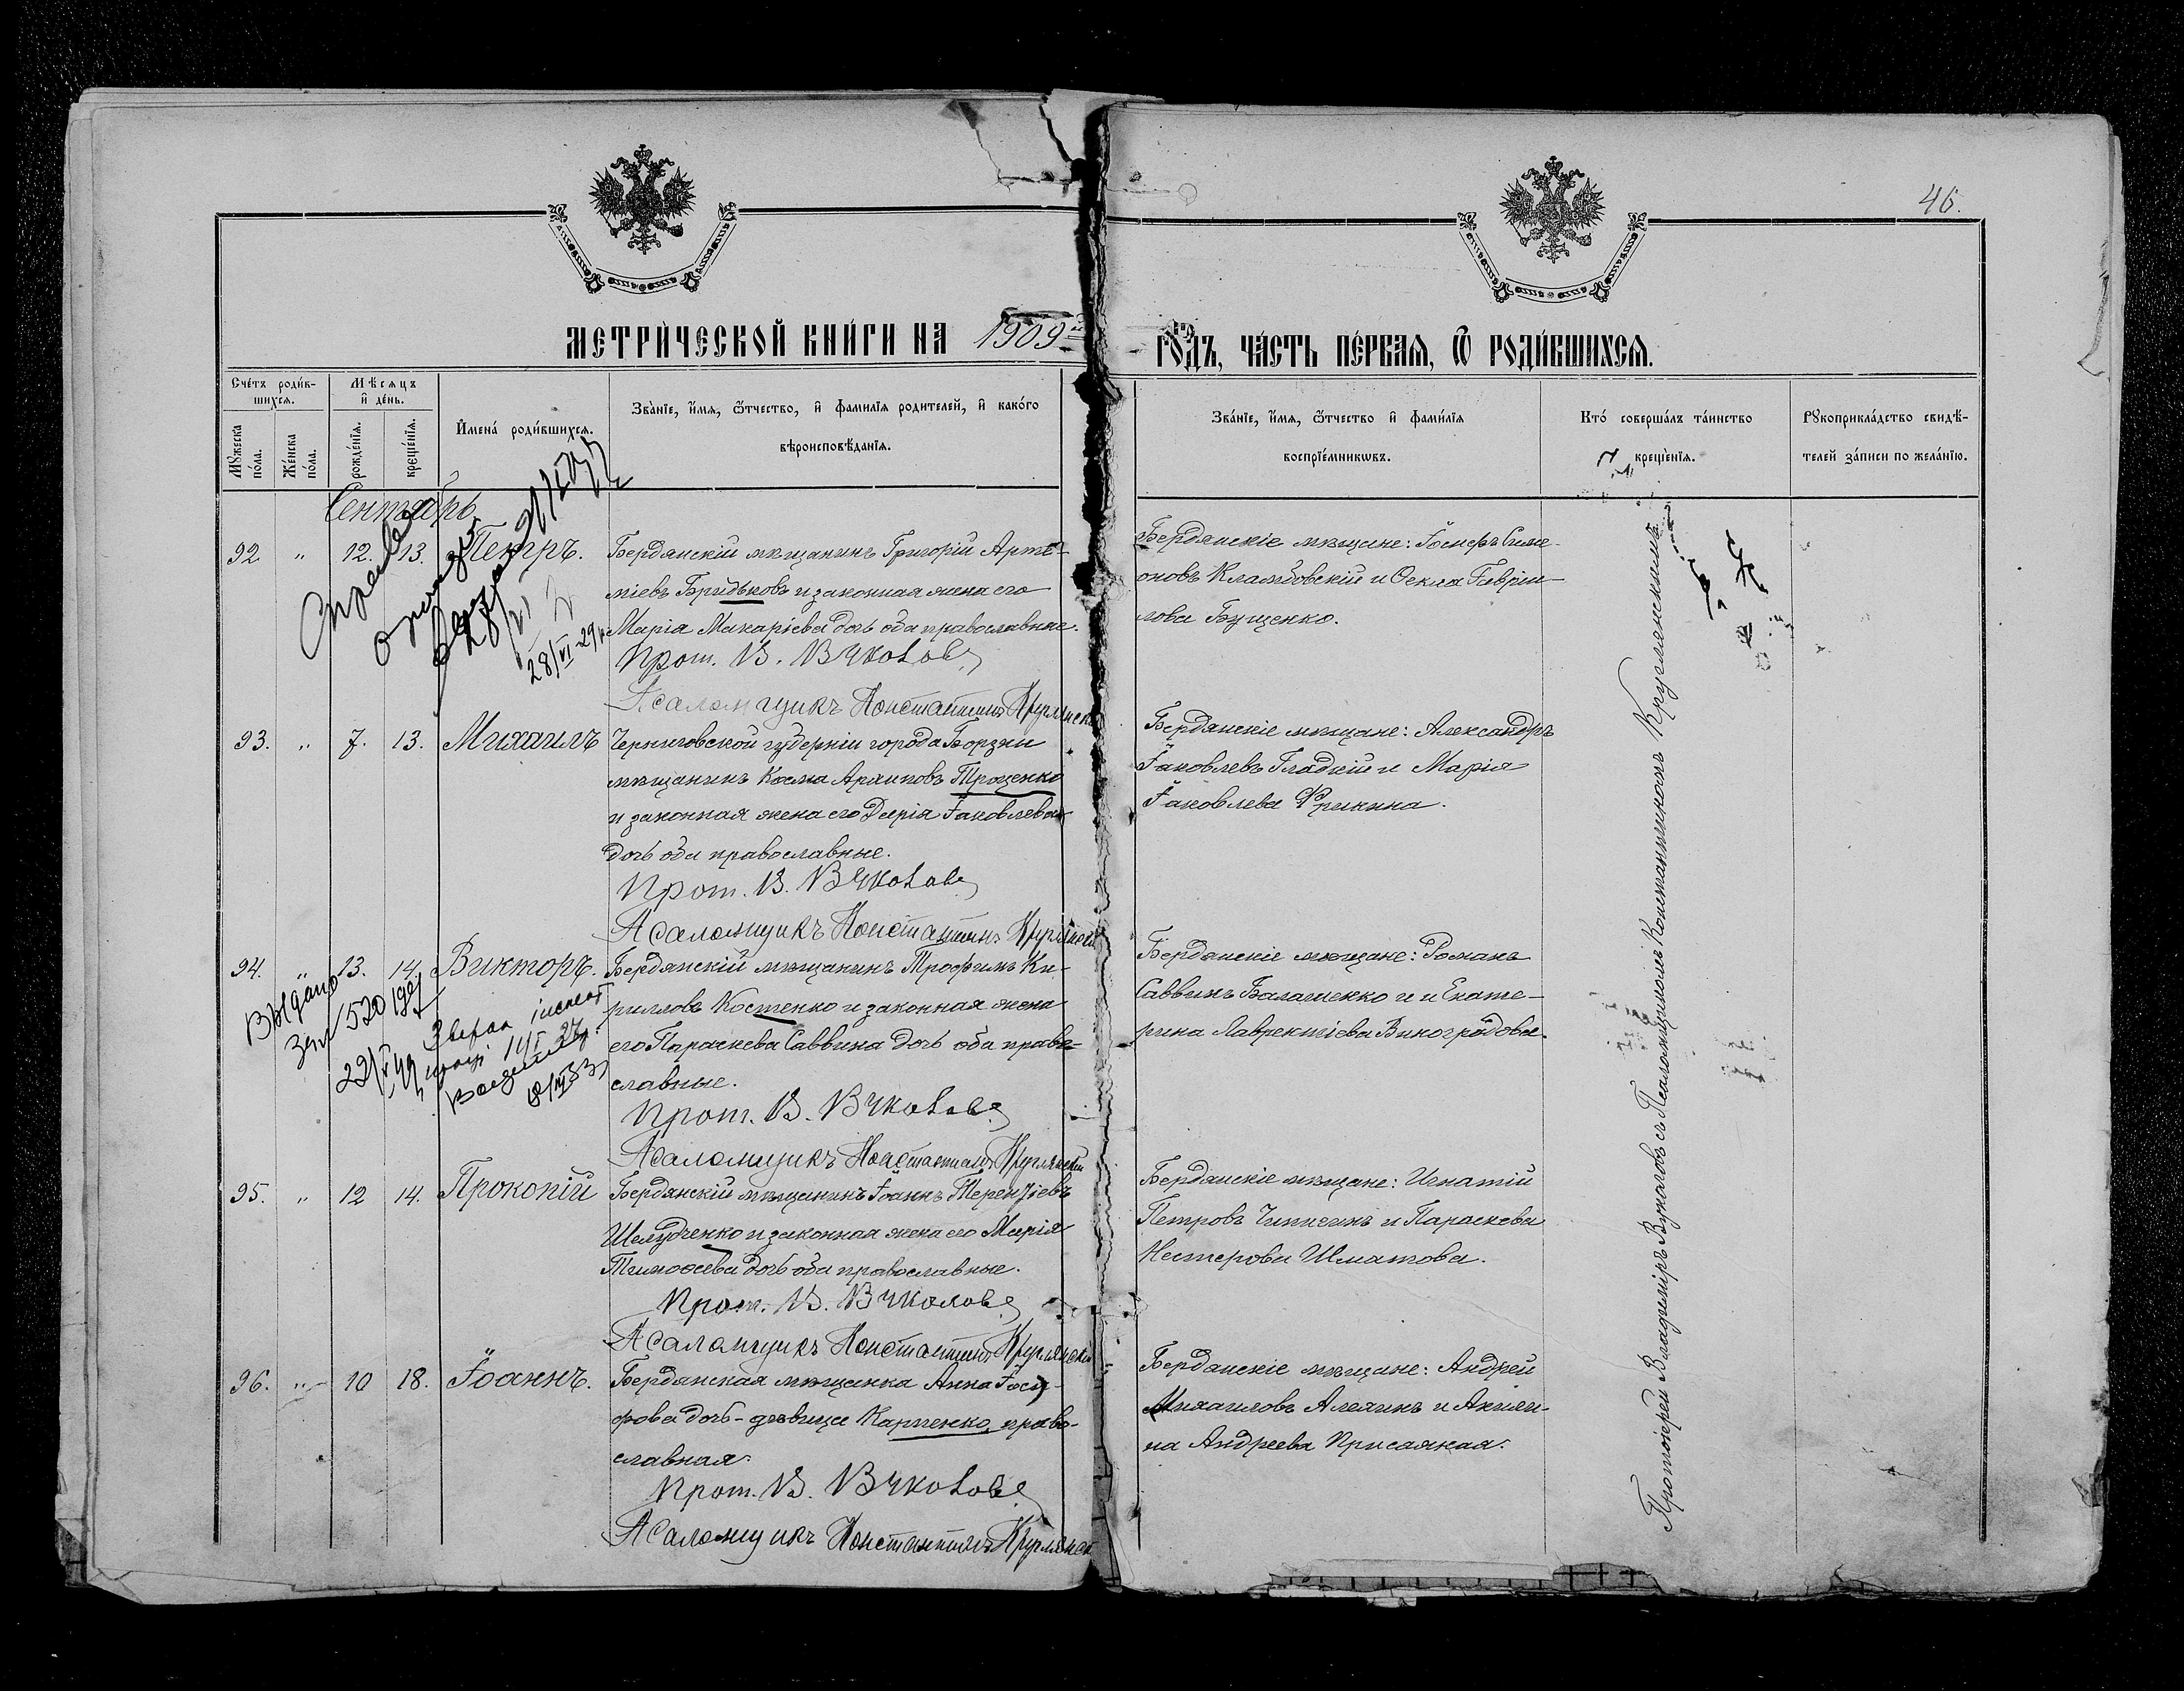 46.
МЕТРИ́ЧЕСКОЙ КНИ́ГИ НА 1909й
ГО́ДЪ, ЧА́СТЬ ПЕ́РВАЯ, Ѡ РОДИ́ВШИХСЯ.
Сче́тъ роди́в-
шихся.
Мѣ́сяцъ
и҆ де́нь.
Мꙋ́жеска
по́ла.
Же́нска
по́ла.
рожде́нїя.
креще́нїя.
И҆мена̀ роди́вшихся.
Зва́нїе, и҆́мя, ѻ҆́тчество, и҆ фами́лїя роди́телей, и҆ како́гѡ
вѣроисповѣ́данїя.
Зва́нїе, и҆́мя, ѻ҆́тчество и҆ фами́лїя
воспрїе́мникѡвъ.
Кто̀ соверша́лъ та́инство
креще́нїя.
Рꙋкоприкла́дство свидѣ́-
телей за́писи по жела́нїю.
Сентябрь
92 " 12. 13. Петръ.
Бердянскій мѣщанинъ Григорій Арте-
міевъ Бридьковъ и законная жена его
Марія Макаріева дочь оба православные.
Прот. В. Вуколовъ
Псаломщикъ Константинъ Круглянскій
Бердянскіе мѣщане: Іосифъ Симе-
оновъ и Ѳекла Гаврі-
лова Бущенко.
28/VI-29
93. " 7. 13. Михаилъ
Черниговской губерніи города Борзны
мѣщанинъ Косма Архиповъ Троценко
и законная жена его Дарія Іаковлева
дочь оба православные.
Прот. В. Вуколовъ
Псаломщикъ Константинъ Круглянскій
Бердянскіе мѣщане: Александръ
Іаковлевъ Гладкій и Марія
Іаковлева
94. " 13. 14. Викторъ.
Бердянскій мѣщанинъ Трофимъ Ки-
рилловъ Костенко и законная жена
его Параскева Саввина дочь оба право-
славные.
Прот. В. Вуколовъ
Псаломщикъ Константинъ Круглянскій
Бердянскіе мѣщане: Романъ
Саввинъ Балашенко и и Екате-
рина Лаврентіева Виноградова.
Выдано
за № 520
95. " 12 14. Прокопій
Бердянскій мѣщанинъ Іоаннъ Терентіевъ
Шелудченко и законная жена его Марія
Тимоѳеева дочь оба православные.
Прот. В. Вуколовъ
Псаломщикъ Константинъ Круглянскій
Бердянскіе мѣщане: Игнатій
Петровъ и Параскева
Нестерова Шматова.
96. " 10 18. Іоаннъ.
Бердянская мѣщанка Анна Іоси-
фова дочь-дѣвица Карпенко, право-
славная.
Прот. В. Вуколовъ
Псаломщикъ Константинъ Круглянск
Бердянскіе мѣщане: Андрей
Михаиловъ Алехинъ и Акили-
на Андреева Присяжная.
Протоіерей Владиміръ Вуколовъ съ Псаломщикомъ Константиномъ Круглянскимъ.